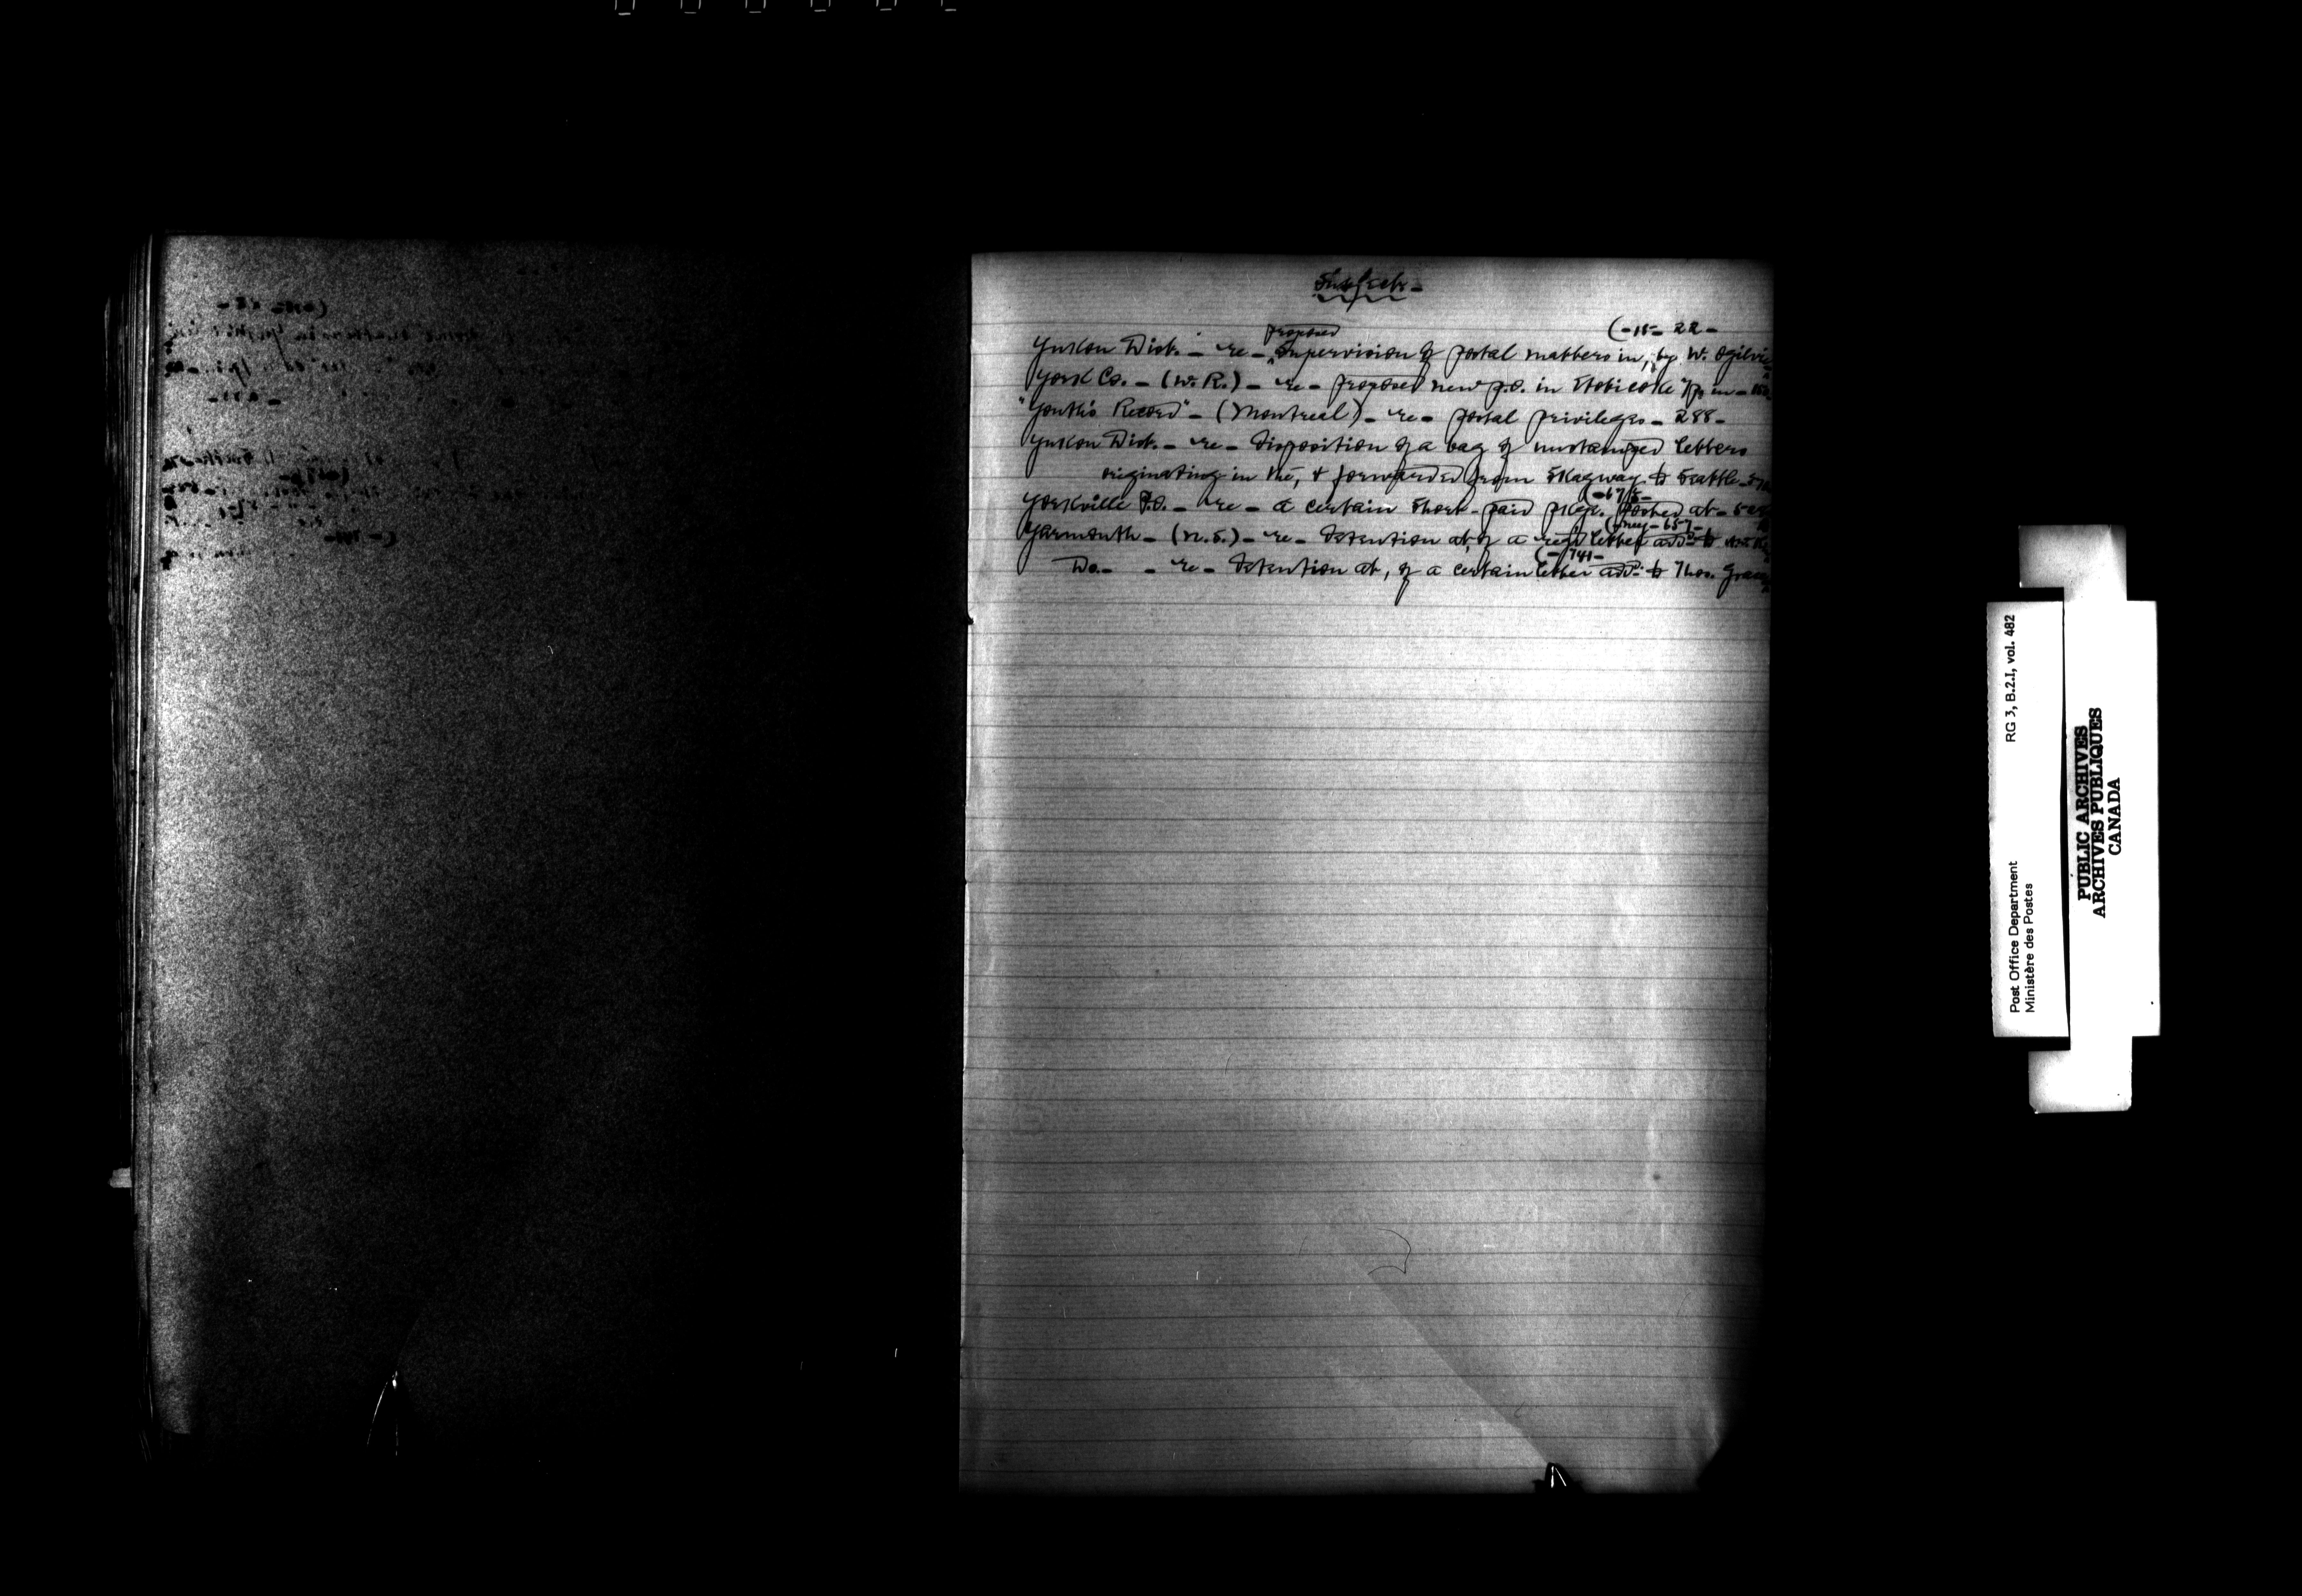 Subjects -
(- 15 - 22 -
proposed
Yukon Dist. - re - Supervision of postal matters in, by W. Ogilvie
York Co. - (W. R.) - re - proposed new p.o. in Etobicoke Tp. in -
"Youth's Record" - (Montreal) - re - postal privileges - 288 -
Yukon Dist. - re - disposition of a bag of unstamped letters
originating in the, & forwarded from Skagway to Seattle -
(- 675 -
Yorkville P.O. - re - a certain short-paid pkge. posted at -
- 657 -
Yarmouth - (N.S.) - re - detention at, of a regd letter add: to
(- 741 -
Do. - - re - detention at, of a certain letter add: to Thos. Grace
RG 3, B.2.I, vol. 482
Post Office Department
Ministère des Postes
PUBLIC ARCHIVES
ARCHIVES PUBLIQUES
CANADA